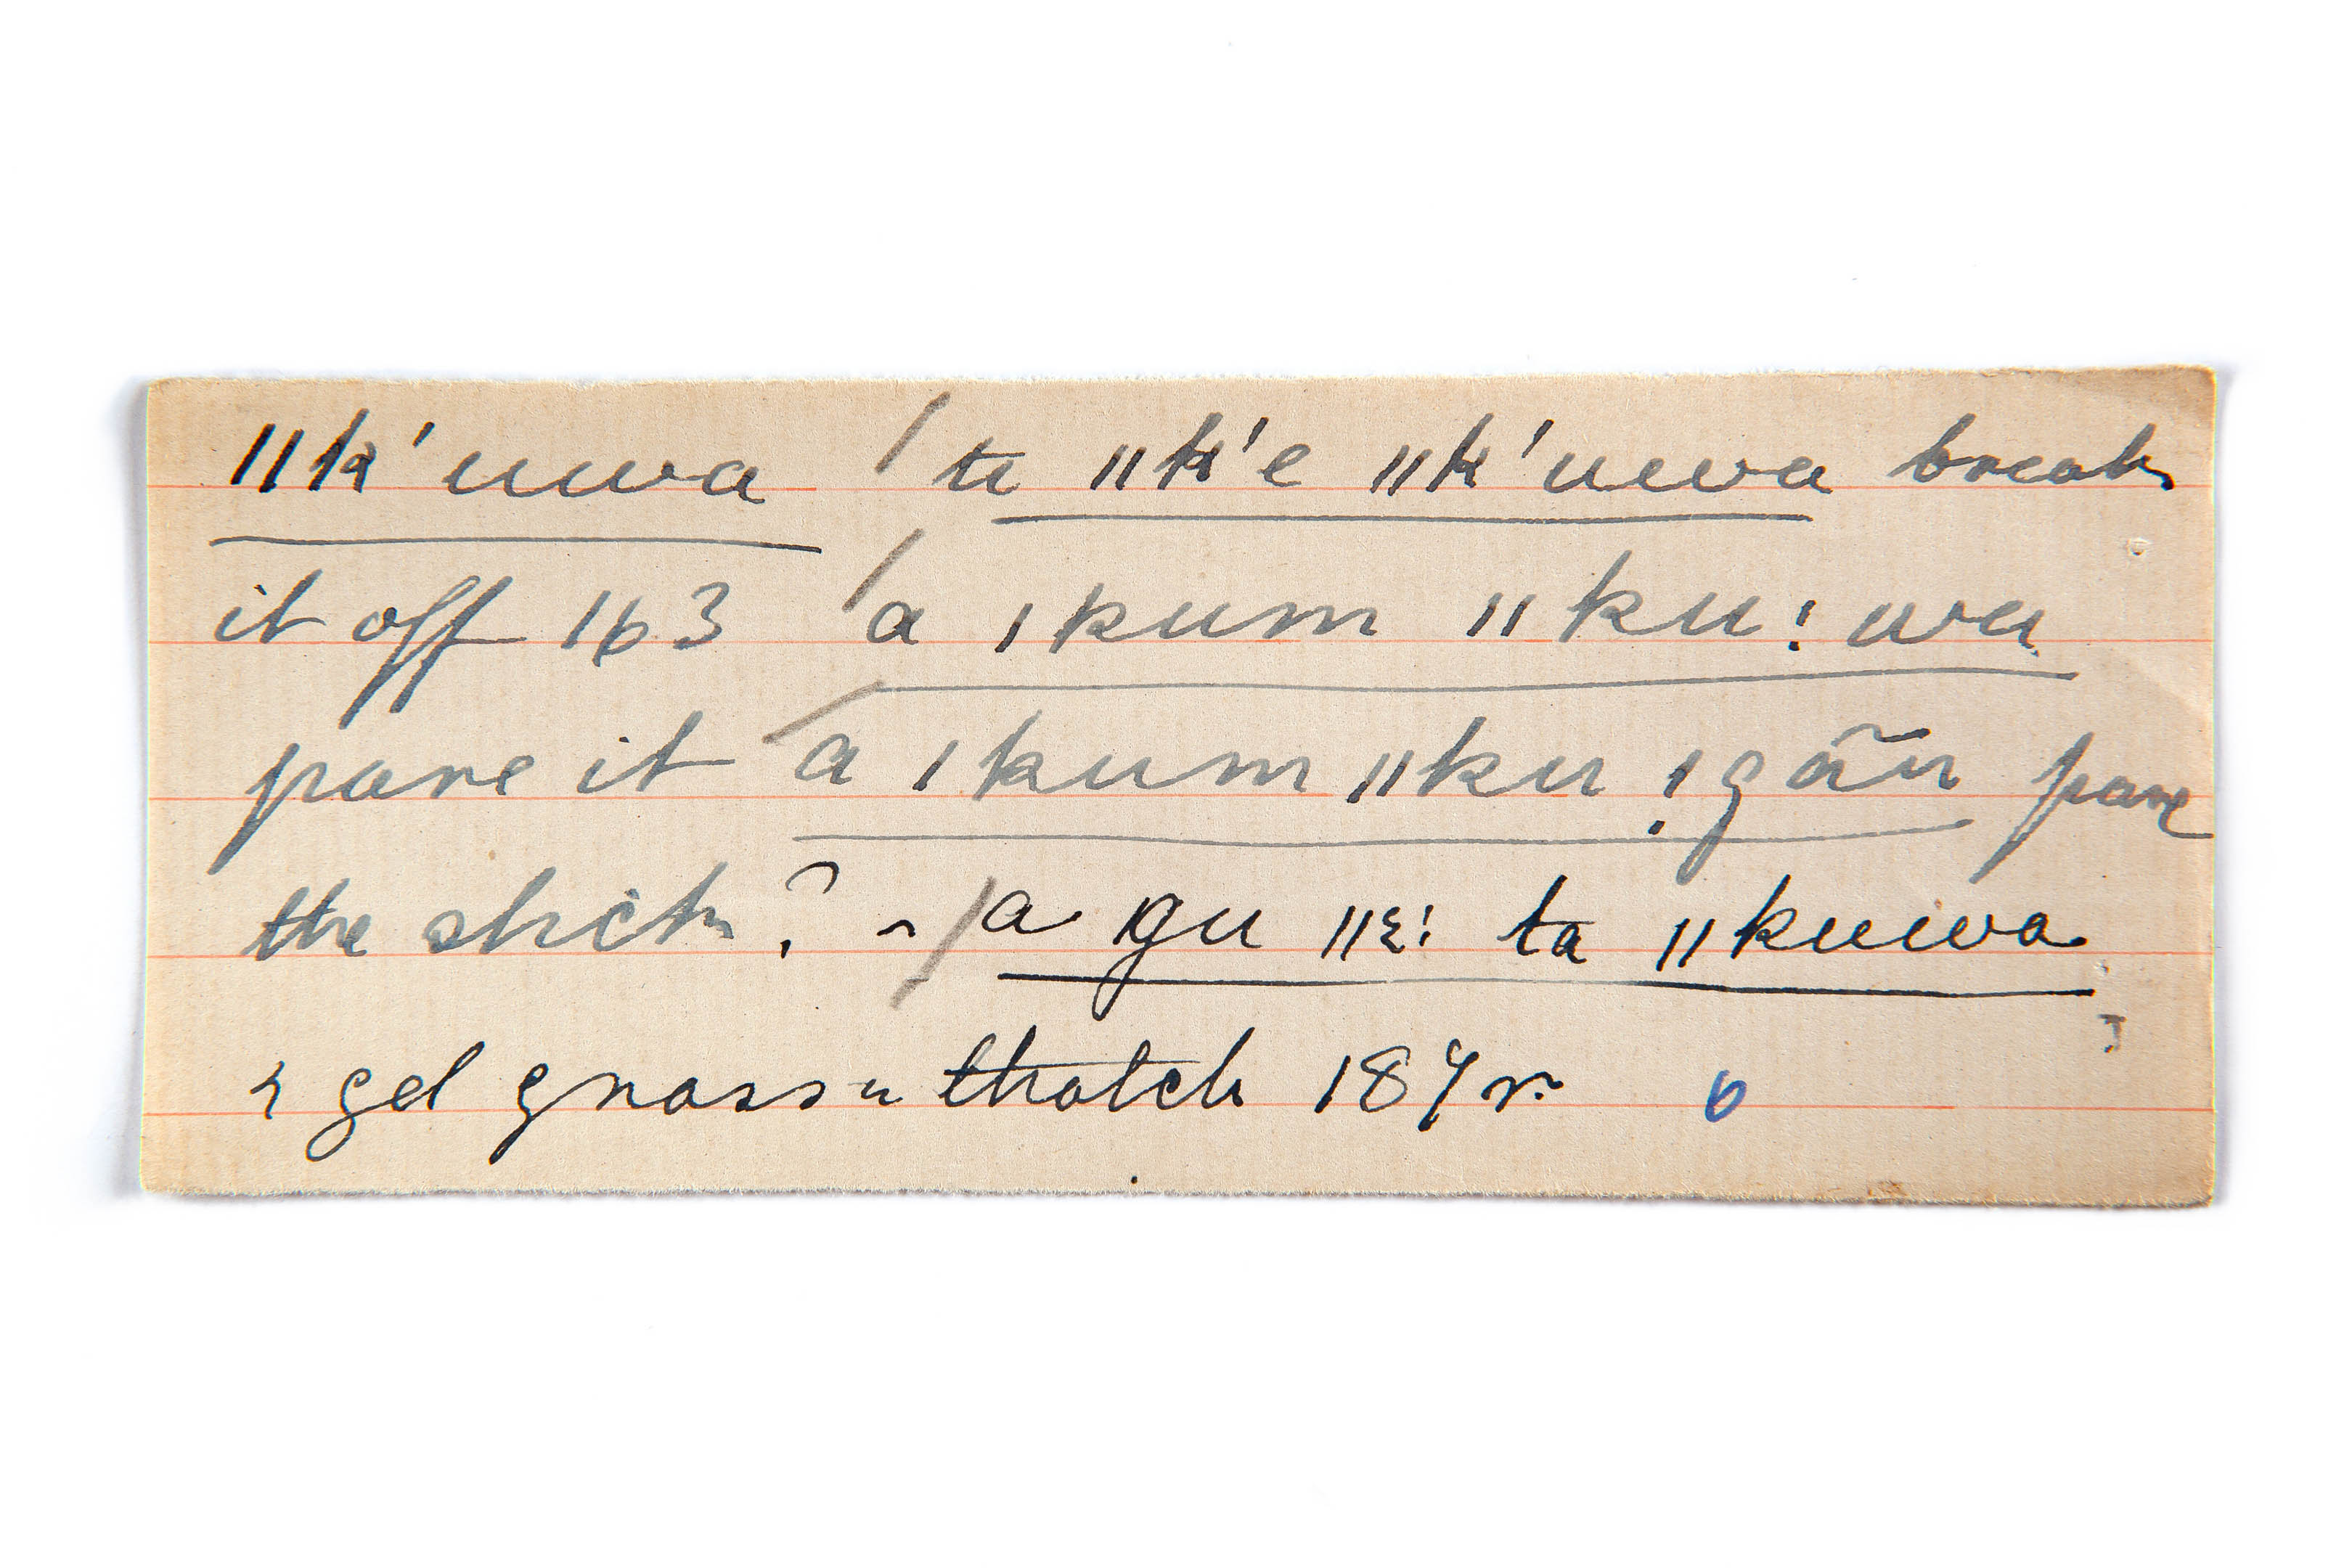 ǁk'uwa / tı ǁk'e ǁk'uwa break
it off 163 / a ǀkum ǁkuː wa
pare it / a ǀkum ǁku ǃgãu pare
the stick? ~ / a gu ǁɛː ta ǁkuwa
get grass thatch 187r. 6